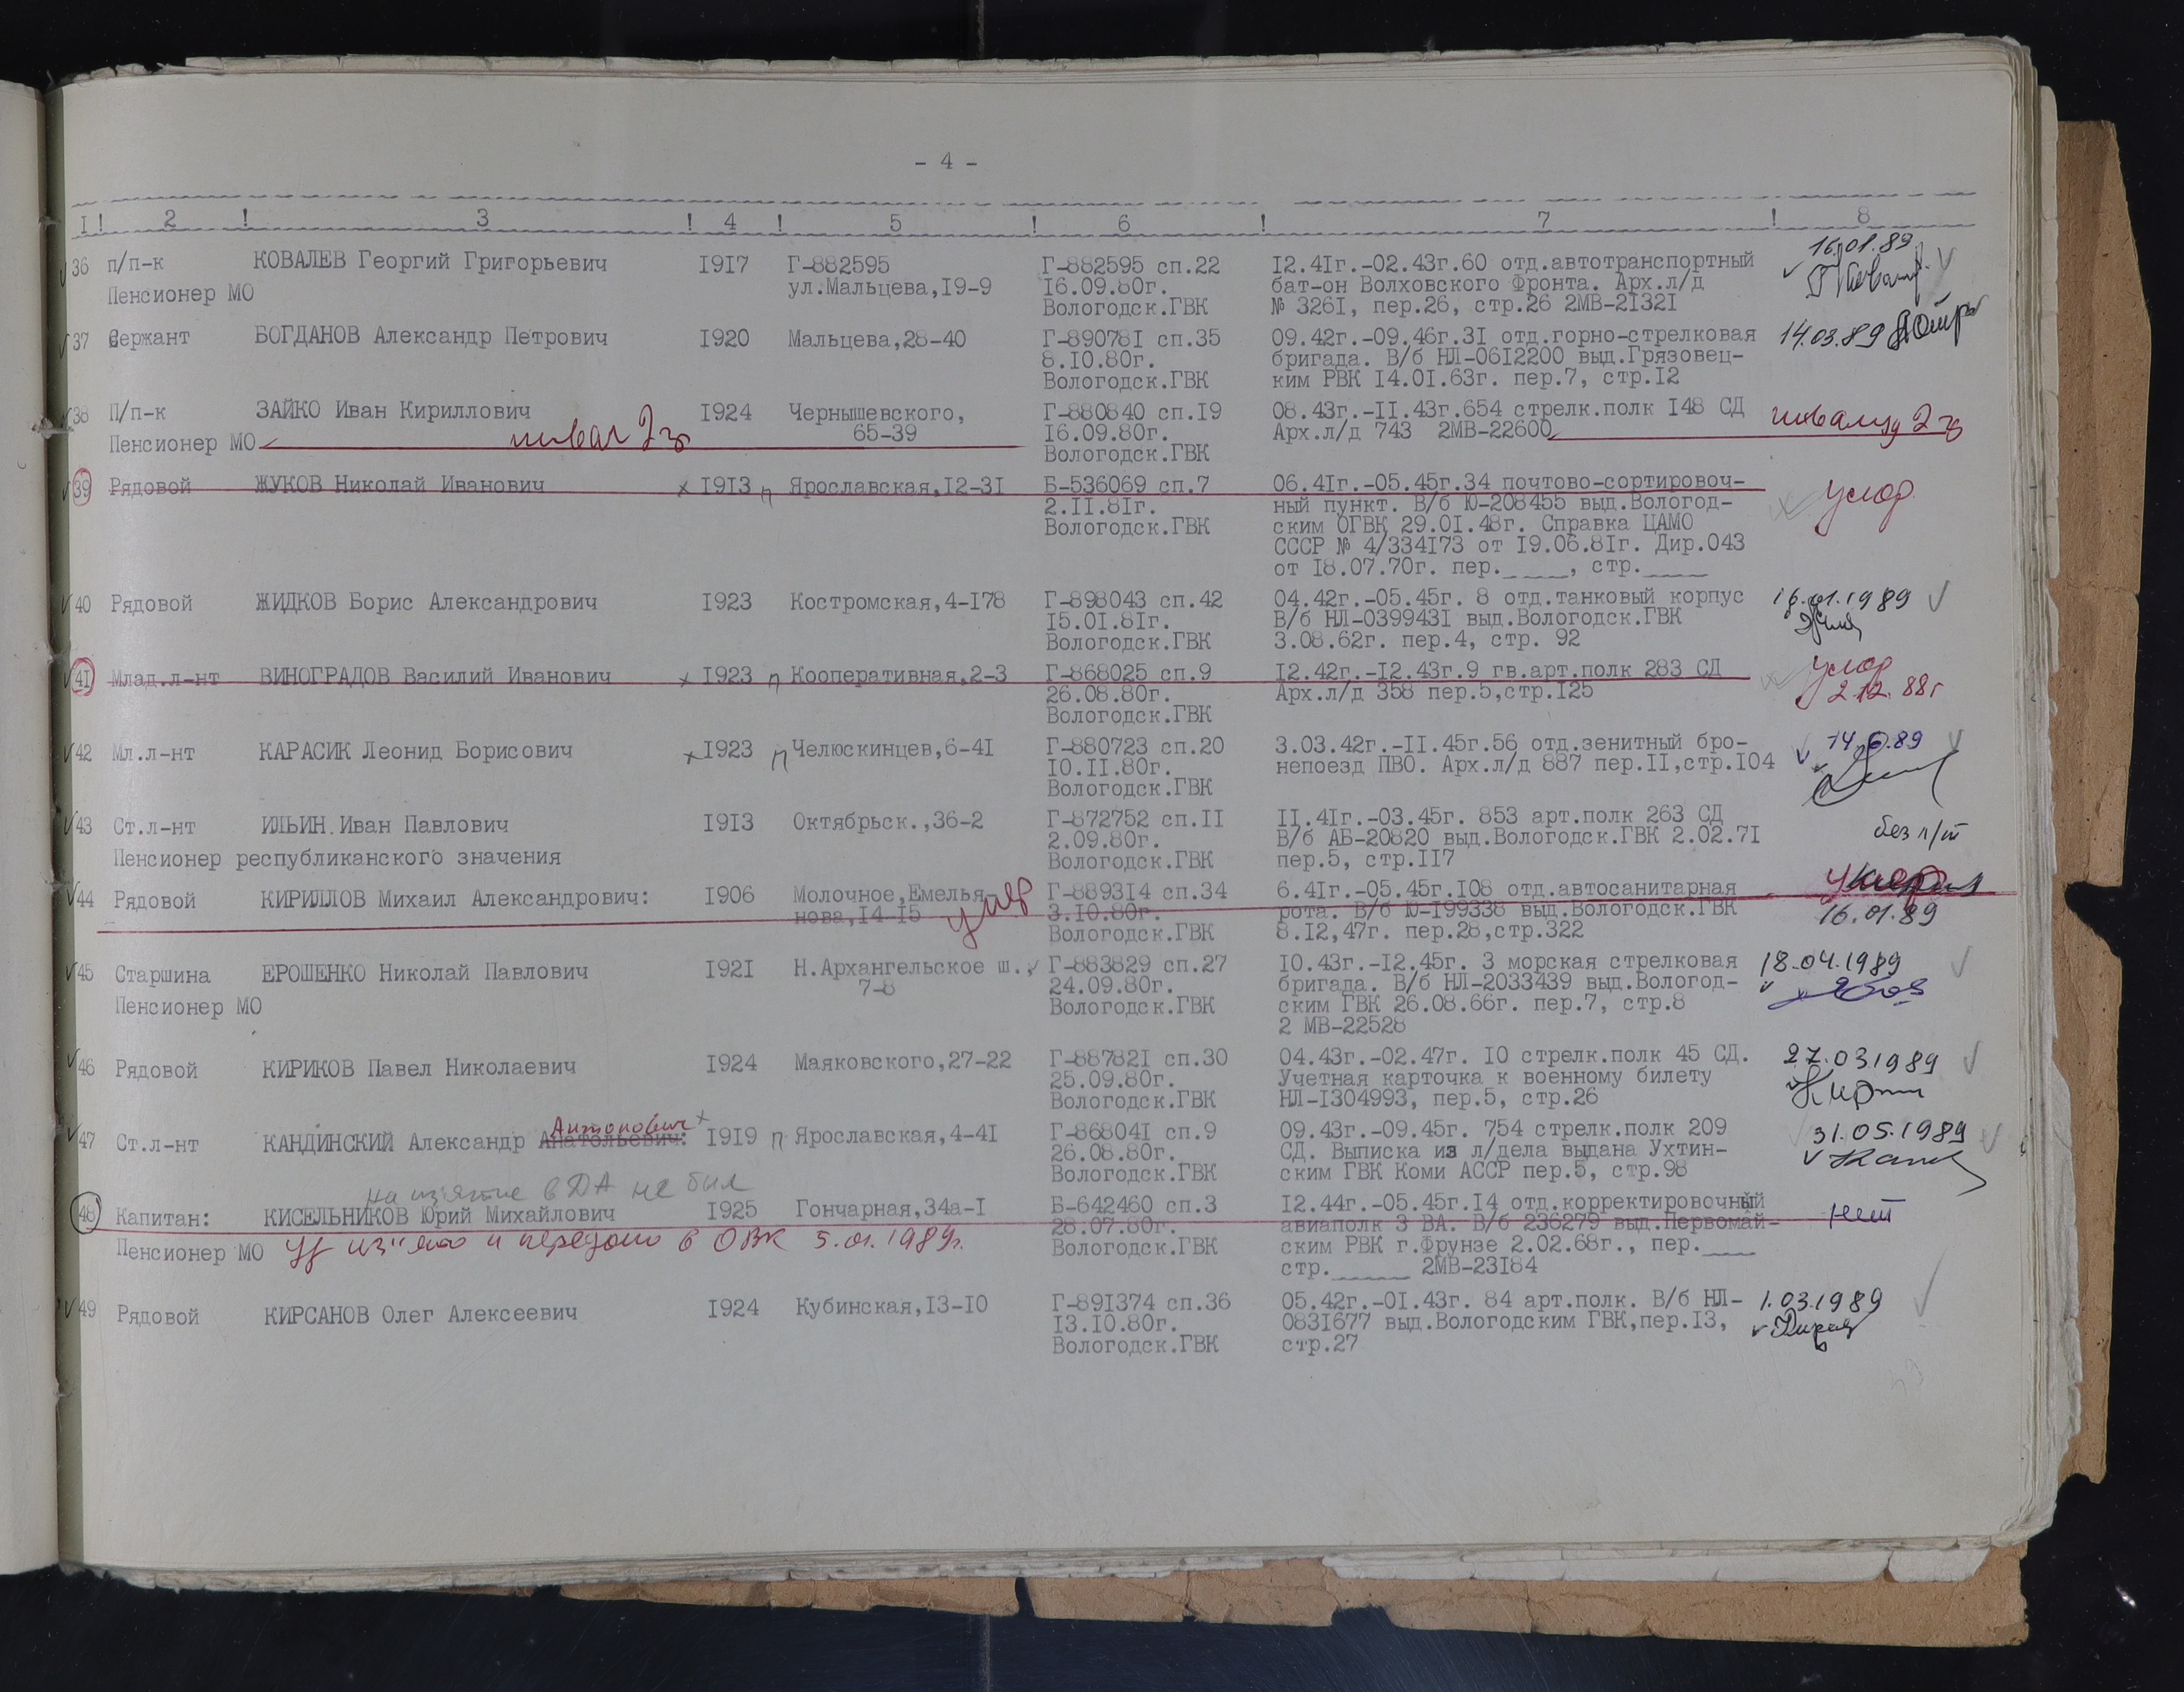 - 4 -
I ! 2 ! 3 ! 4 ! 5 ! 6 ! 7 ! 8
36 п/п-к КОВАЛЕВ Георгий Григорьевич 1917 Г-882595 Г-882595 сп.22 12.41г.-02.43г.60 отд.автотранспортный 16.01.89
Пенсионер МО ул.Мальцева,19-9 16.09.80г. бат-он Волховского Фронта. Арх.л/д
Вологодск.ГВК № 3261, пер.26, стр.26 2МВ-21321
37 Сержант БОГДАНОВ Александр Петрович 1920 Мальцева,28-40 Г-890781 сп.35 09.42г.-09.46г.31 отд.горно-стрелковая 14.03.89
8.10.80г. бригада. В/б НЛ-0612200 выд.Грязовец-
Вологодск.ГВК ким РВК 14.01.63г. пер.7, стр.12
38 П/п-к ЗАЙКО Иван Кириллович 1924 Чернышевского, Г-880840 сп.19 08.43г.-11.43г.654 стрелк.полк 148 СД инвалид 2 гр
Пенсионер МО инвал 2 гр 65-39 16.09.80г. Арх.л/д 743 2МВ-22600
Вологодск.ГВК
39 Рядовой ЖУКОВ Николай Иванович х 1913 п Ярославская,12-31 Б-536069 сп.7 06.41г.-05.45г.34 почтово-сортировоч- умер
2.11.81г. ный пункт. В/б Ю-208455 выд.Вологод-
Вологодск.ГВК ским ОГВК 29.01.48г. Справка ЦАМО
СССР № 4/334173 от 19.06.81г. Дир.043
от 18.07.70г. пер.____, стр.____
40 Рядовой ЖИДКОВ Борис Александрович 1923 Костромская,4-178 Г-898043 сп.42 04.42г.-05.45г. 8 отд.танковый корпус 16.01.1989
15.01.81г. В/б НЛ-0399431 выд.Вологодск.ГВК
Вологодск.ГВК 3.08.62г. пер.4, стр. 92
41 Млад.л-нт ВИНОГРАДОВ Василий Иванович х 1923 п Кооперативная,2-3 Г-868025 сп.9 12.42г.-12.43г.9 гв.арт.полк 283 СД умер
26.08.80г. Арх.л/д 358 пер.5,стр.125 2.12.88г
Вологодск.ГВК
42 Мл.л-нт КАРАСИК Леонид Борисович х 1923 п Челюскинцев,6-41 Г-880723 сп.20 3.03.42г.-11.45г.56 отд.зенитный бро-
10.11.80г. непоезд ПВО. Арх.л/д 887 пер.11,стр.104
Вологодск.ГВК
43 Ст.л-нт ИЛЬИН Иван Павлович 1913 Октябрьск.,36-2 Г-872752 сп.11 11.41г.-03.45г. 853 арт.полк 263 СД без л/т
2.09.80г. В/б АБ-20820 выд.Вологодск.ГВК 2.02.71
Пенсионер республиканского значения Вологодск.ГВК пер.5, стр.117
44 Рядовой КИРИЛЛОВ Михаил Александрович: 1906 Молочное,Емелья- Г-889314 сп.34 6.41г.-05.45г.108 отд.автосанитарная умер
нова,14-15 умер 3.10.80г. рота. В/б Ю-199338 выд.Вологодск.ГВК 16.01.89
Вологодск.ГВК 8.12,47г. пер.28,стр.322
45 Старшина ЕРОШЕНКО Николай Павлович 1921 Н.Архангельское ш., Г-883829 сп.27 10.43г.-12.45г. 3 морская стрелковая 18.04.1989
7-8 24.09.80г. бригада. В/б НЛ-2033439 выд.Вологод-
Пенсионер МО Вологодск.ГВК ским ГВК 26.08.66г. пер.7, стр.8
2 МВ-22528
46 Рядовой КИРИКОВ Павел Николаевич 1924 Маяковского,27-22 Г-887821 сп.30 04.43г.-02.47г. 10 стрелк.полк 45 СД. 27.03.1989
25.09.80г. Учетная карточка к военному билету
Вологодск.ГВК НЛ-1304993, пер.5, стр.26
Антонович х
47 Ст.л-нт КАНДИНСКИЙ Александр Анатольевич: 1919 п Ярославская,4-41 Г-868041 сп.9 09.43г.-09.45г. 754 стрелк.полк 209 31.05.1989
26.08.80г. СД. Выписка из л/дела выдана Ухтин-
Вологодск.ГВК ским ГВК Коми АССР пер.5, стр.98
на изъятие в ДА не был
48 Капитан: КИСЕЛЬНИКОВ Юрий Михайлович 1925 Гончарная,34а-1 Б-642460 сп.3 12.44г.-05.45г.14 отд.корректировочный нет
28.07.80г. авиаполк 3 ВА. В/б 236279 выд.Первомай-
Пенсионер МО уд изъято и передано в ОВК 5.01.1989г. Вологодск.ГВК ским РВК г.Фрунзе 2.02.68г., пер.____
стр._____ 2МВ-23184
49 Рядовой КИРСАНОВ Олег Алексеевич 1924 Кубинская,13-10 Г-891374 сп.36 05.42г.-01.43г. 84 арт.полк. В/б НЛ- 1.03.1989
13.10.80г. 0831677 выд.Вологодским ГВК,пер.13,
Вологодск.ГВК стр.27